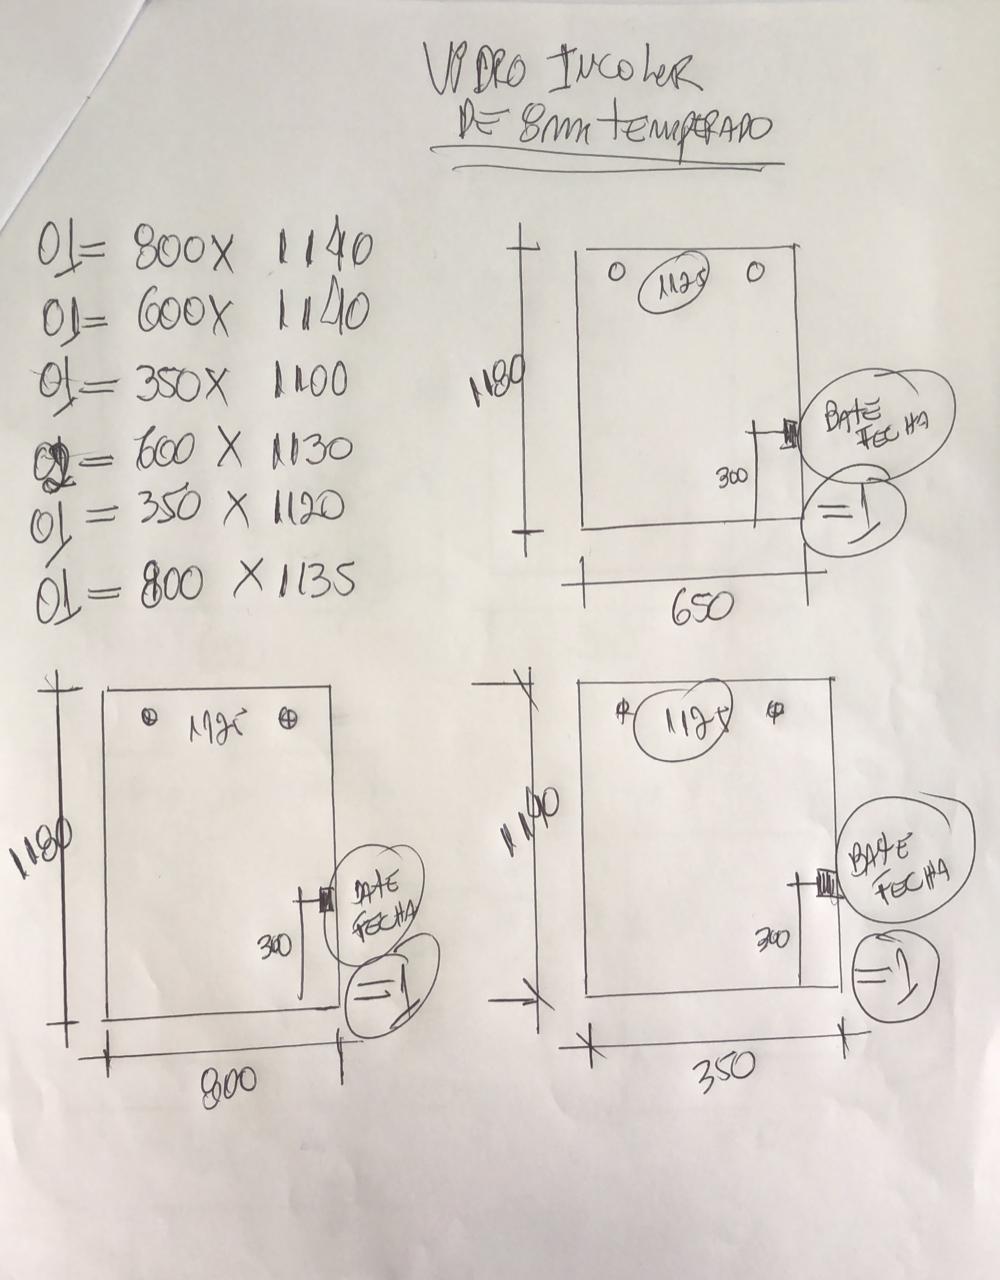 VIDRO INCOLOR
DE 8mm TEMPERADO
01= 800X 1140
01= 600X 1140
01= 350X 1100
02= 600 X 1130
01= 350 X 1120
01= 800 X 1135
1125
1180
BATE
FECHA
300
=1
650
1125
1180
BATE
FECHA
300
=1
800
1125
1140
BATE
FECHA
300
=1
350